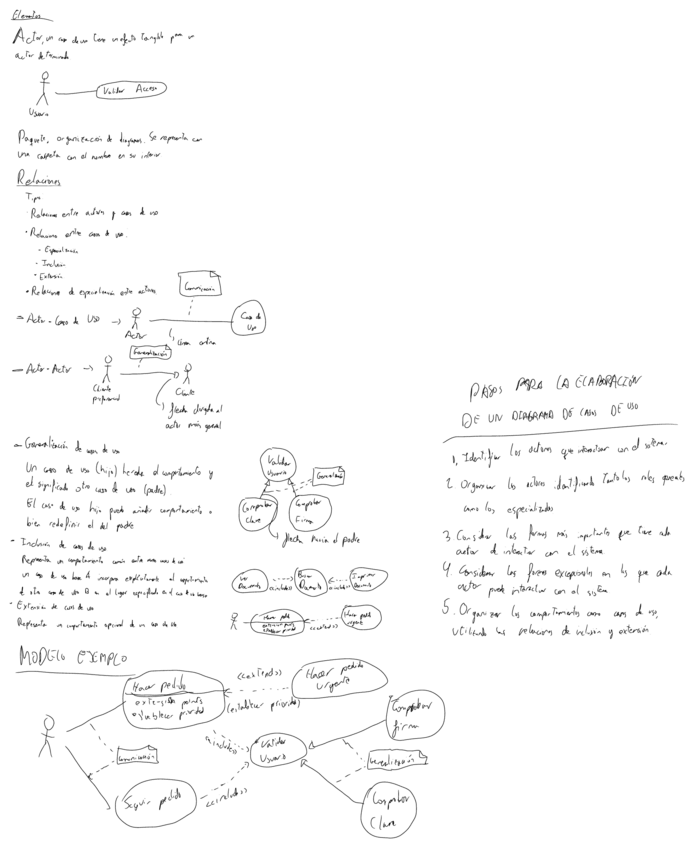 Elementos
Actor, un caso de uso tiene un efecto tangible para un
actor determinado
Validar Acceso
Usuario
Paquete, organización de diagramas. Se representa con
una carpeta con el nombre en su interior
Relaciones
Tipo
· Relaciones entre actores y casos de uso
· Relaciones entre casos de uso.
- Especialización
- Inclusión
- Extensión
· Relaciones de especialización entre actores
Comunicación
- Actor - Casos de Uso →
Actor
Caso de
Uso
línea continua
- Actor - Actor →
Generalización
Cliente
profesional
Cliente
flecha dirigida al
actor más general
- Generalización de casos de uso
Un caso de uso (hijo) hereda el comportamiento y
el significado otro caso de uso (padre).
El caso de uso hijo puede añadir comportamiento o
bien redefinir el del padre
Validar
Usuario
Generalización
Comprobar
Clave
Comprobar
Firma
flecha hacia el padre
- Inclusión de casos de uso
Representa un comportamiento común entre casos de uso
un caso de uso base A incorpora explícitamente el comportamiento
de otro caso de uso B en el lugar especificado en el caso de uso base
Ver
Documento
<<include>>
Buscar
Documento
<<include>>
Imprimir
Documento
- Extensión de casos de uso
Representa un comportamiento opcional de un caso de uso
Hacer pedido
extension points
establecer prioridad
<<extend>>
Hacer pedido
urgente
MODELO EJEMPLO
Hacer pedido
extension points
establecer prioridad
<<extend>>
(establecer prioridad)
Hacer pedido
urgente
Comunicación
<<include>>
Validar
Usuario
Comprobar
firma
Generalización
Seguir pedido
<<include>>
Comprobar
Clave
PASOS PARA LA ELABORACIÓN
DE UN DIAGRAMA DE CASOS DE USO
1. Identificar los actores que interactúan con el sistema.
2. Organizar los actores identificando tanto los roles generales
como los especializados
3. Considerar las formas más importantes que tiene cada
actor de interactuar con el sistema
4. Considerar las formas excepcionales en las que cada
actor puede interactuar con el sistema
5. Organizar los comportamientos como casos de uso,
utilizando las relaciones de inclusión y extensión